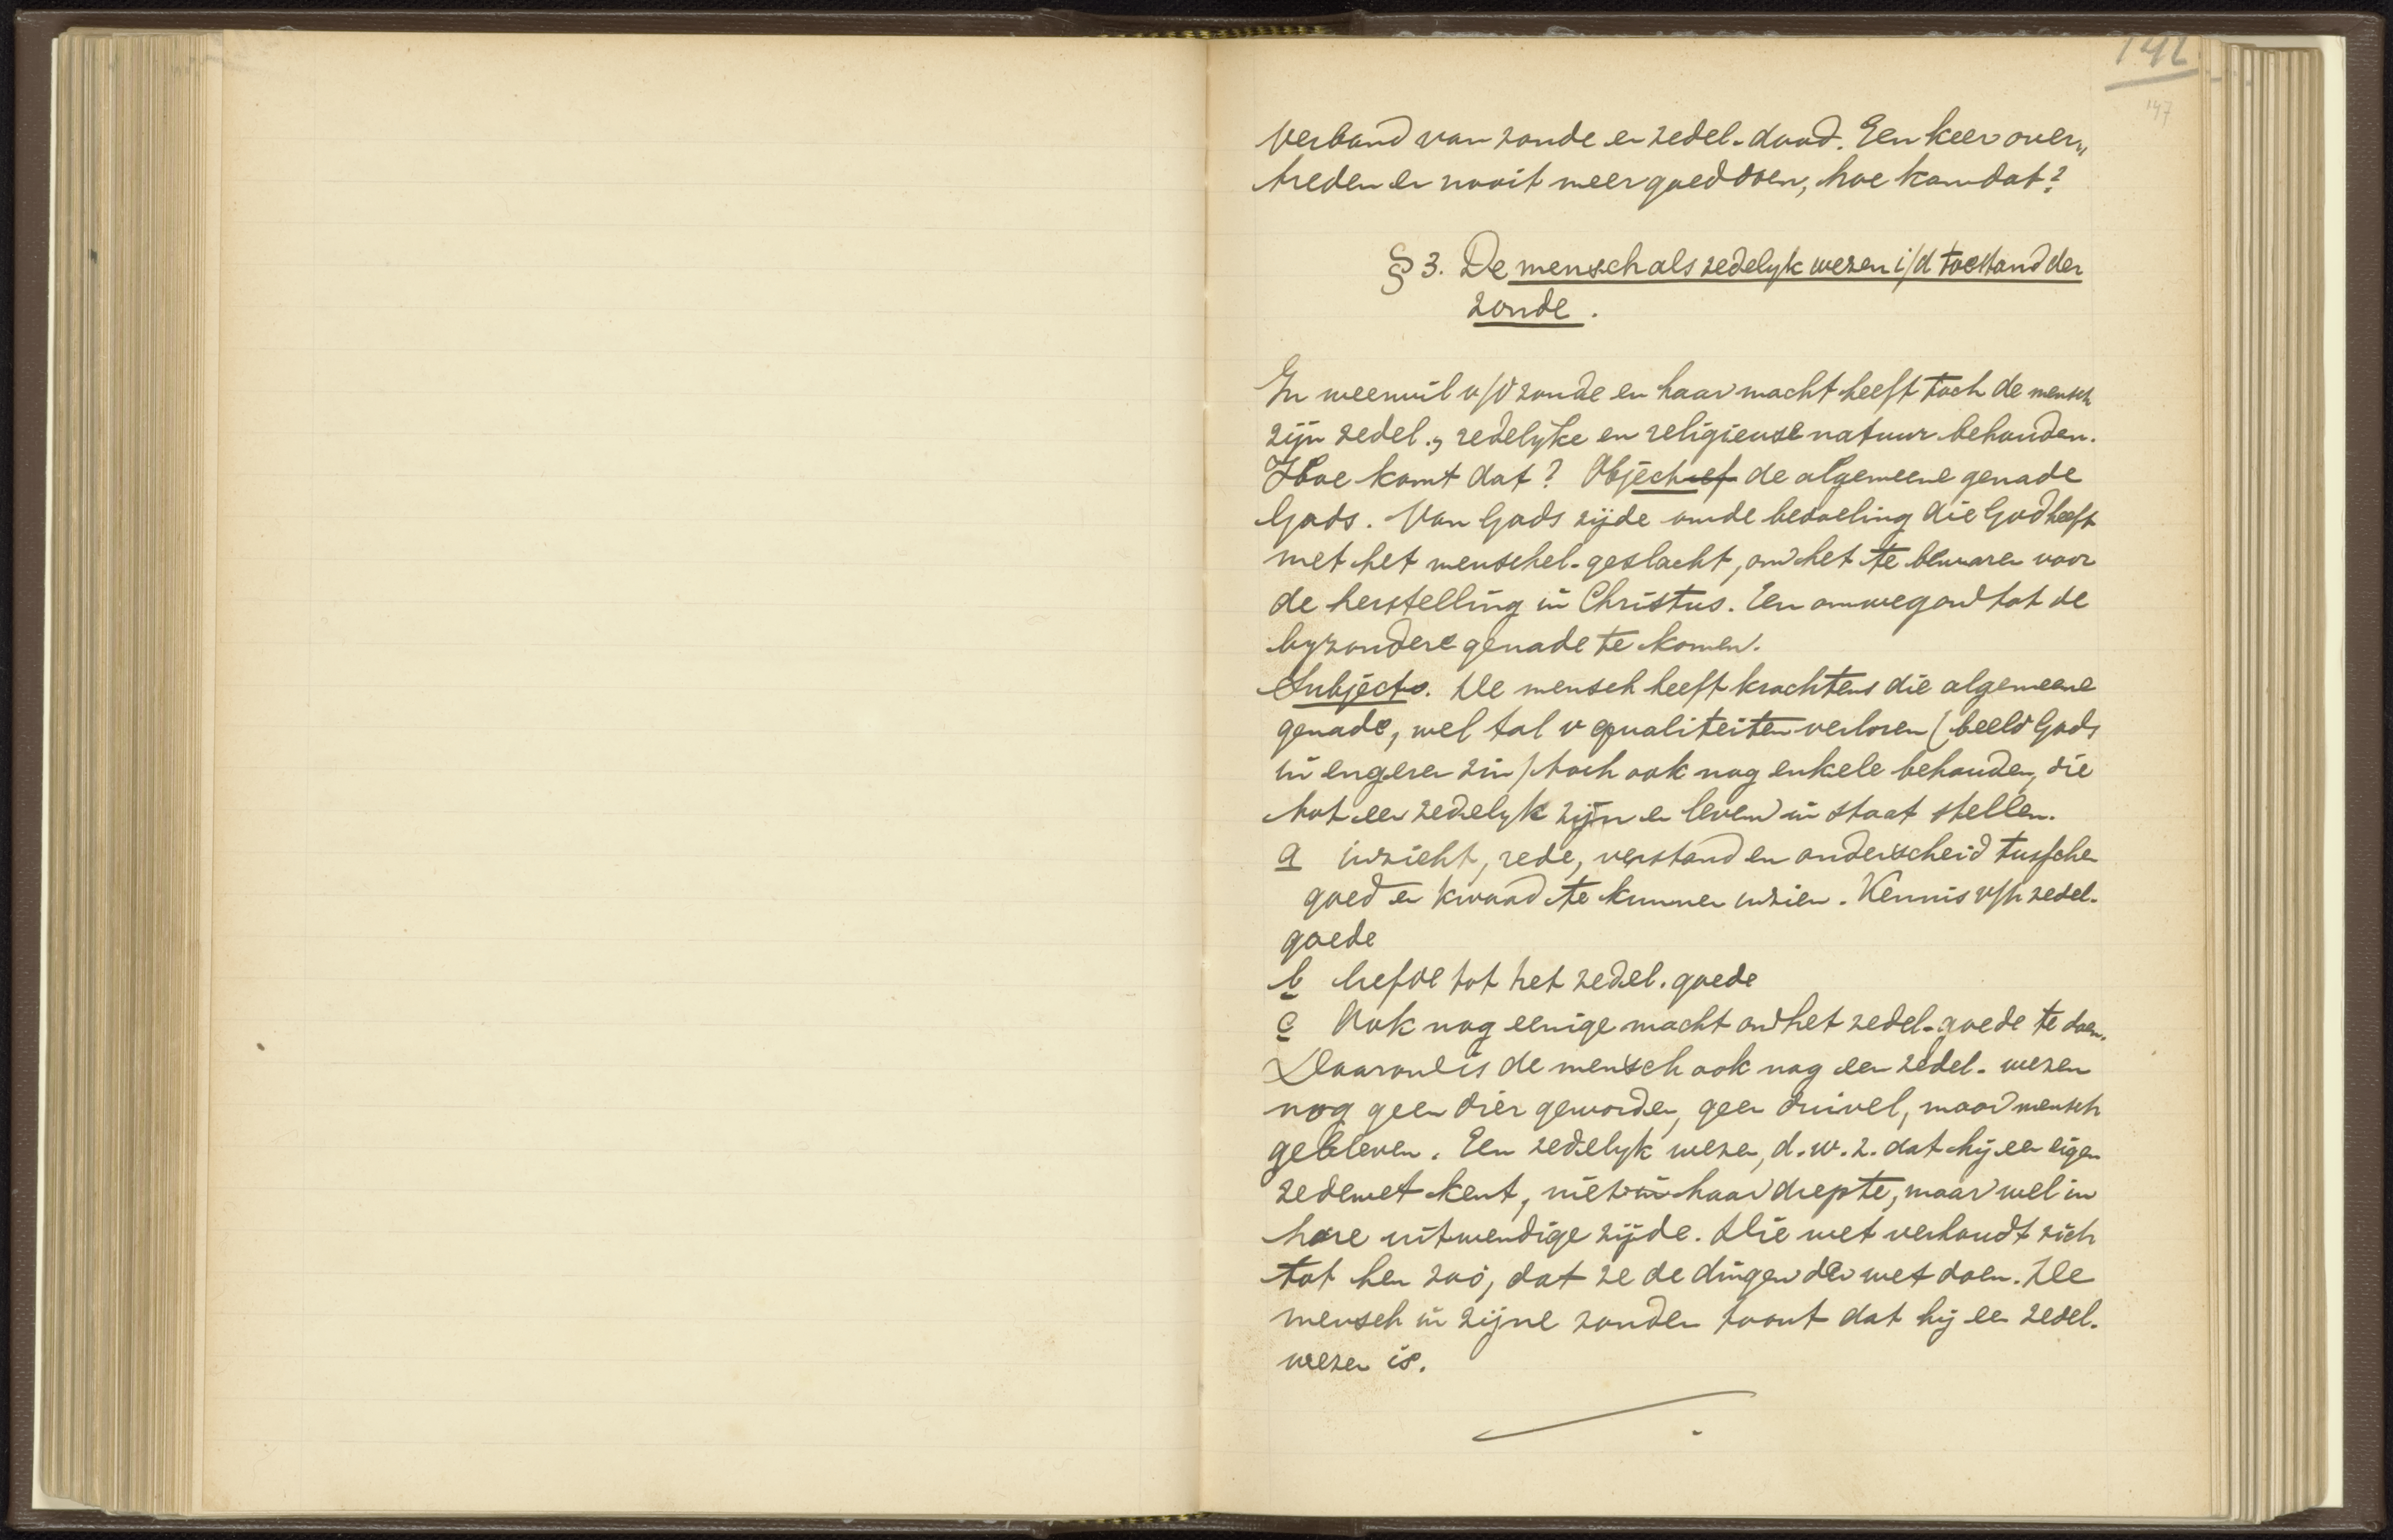 142
147
verband van zonde en zedel. daad. Een keer over„
treden en nooit meer goed doen, hoe kan dat?
§ 3. De mensch als zedelyk wezen i/d toestand der
zonde.
In weerwil v/d zonde en haar macht heeft toch de mensch
zijn zedel., redelyke en religieuse natuur behouden.
Hoe komt dat? Objectief de algemeene genade
Gods. Van Gods zijde om de bedoeling die God heeft
met het menschel. geslacht, om het te bewaren voor
de herstelling in Christus. Een omweg om tot de
byzondere genade te komen.
Subject. De mensch heeft krachtens die algemeene
genade, wel tal v qualiteiten verloren (beeld Gods
in engeren zin) toch ook nog enkele behouden, die
tot een zedelyk zijn en leven in staat stellen.
a inzicht, rede, verstand en onderscheid tusschen
goed en kwaad te kunnen inzien. Kennis v/h zedel.
goede
b liefde tot het zedel. goede
c Ook nog eenige macht om het zedel. goede te doen.
Daarom is de mensch ook nog een zedel. wezen
nog geen dier geworden, geen duivel, maar mensch
gebleven. Een zedelyk wezen, d.w.z. dat hij een eigen
zedewet kent, niet in haar diepte, maar wel in
hare uitwendige zijde. Die wet verhoudt zich
tot hen zoó, dat ze de dingen der wet doen. De
mensch in zijne zonden toont dat hij een zedel.
wezen is.